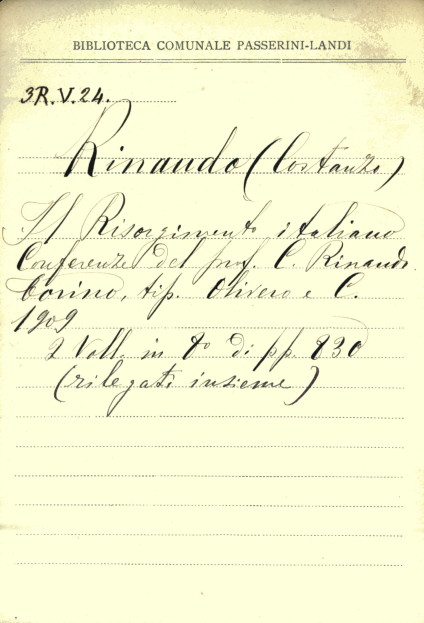 BIBLIOTECA COMUNALE PASSERINI-LANDI
3R.V.24.
Rinaudo (Costanzo)
Il Risorgimento italiano
Conferenze del prof. C. Rinaudo
Torino, tip. Olivero e C.
1909
2 Voll. in 8° di pp. 830
(rilegati insieme)